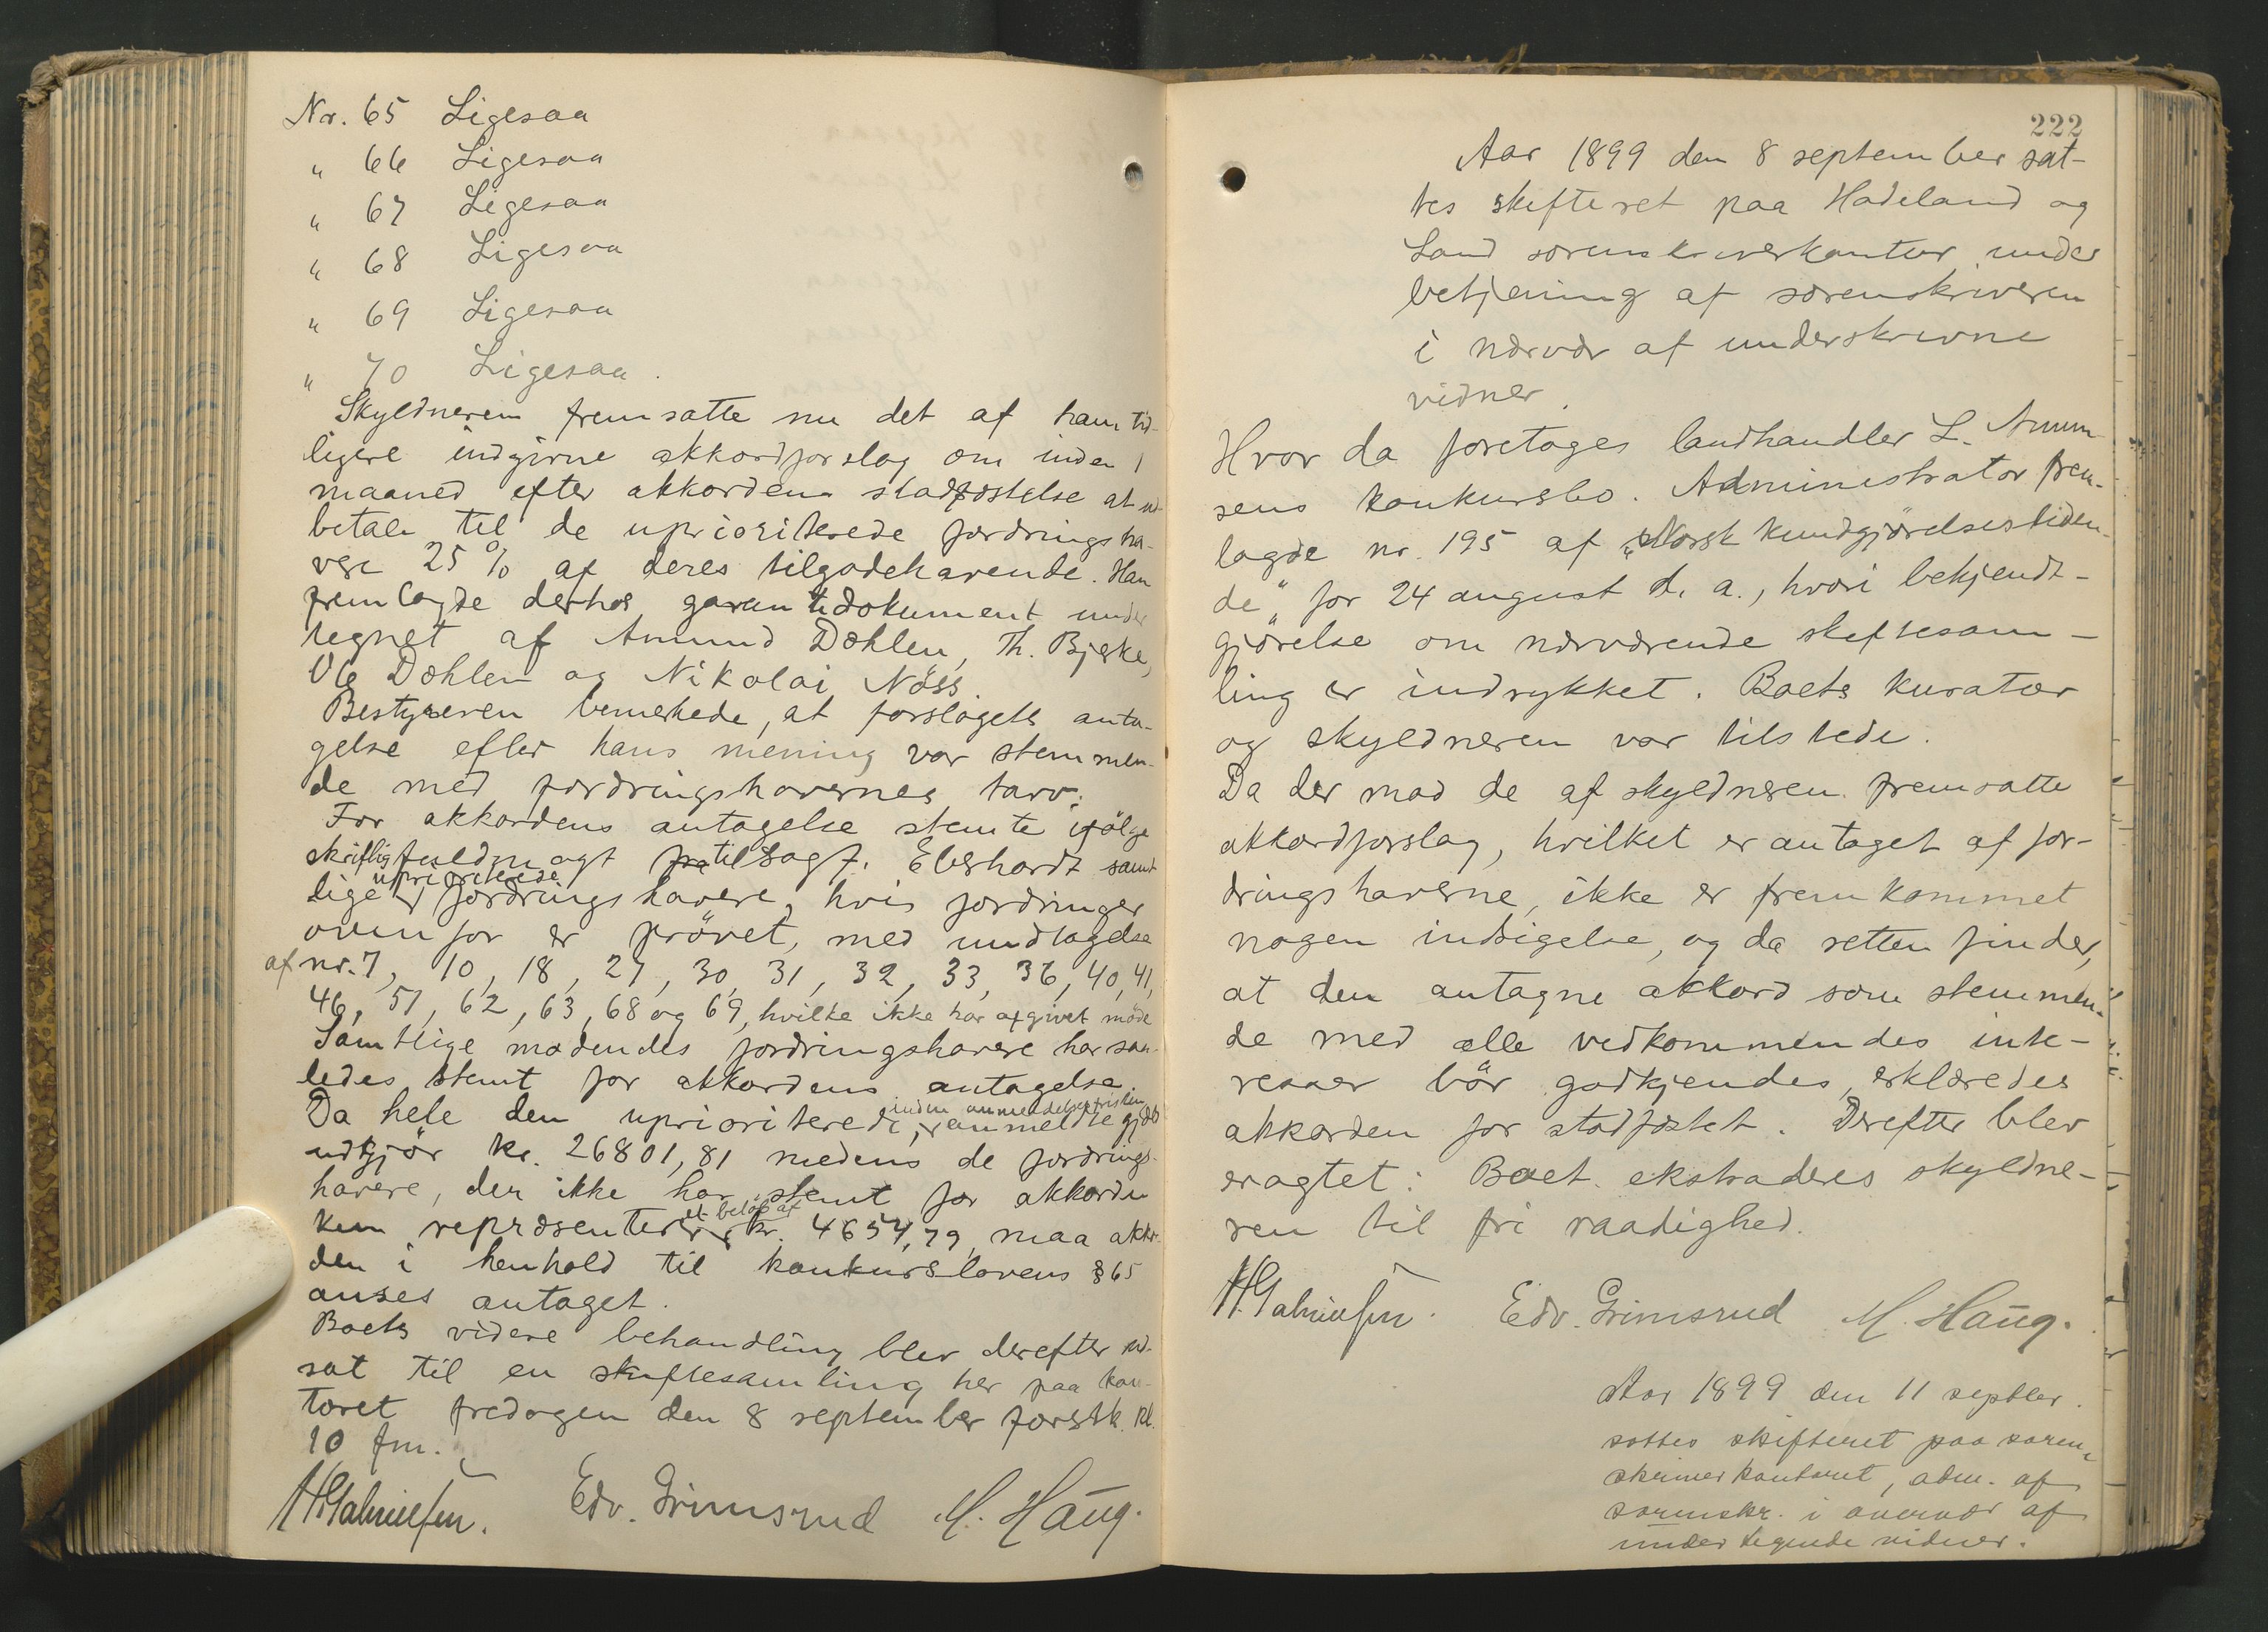 Nr. 65 Ligesaa
" 66 Ligesaa
" 67 Ligesaa
" 68 Ligesaa
" 69 Ligesaa
" 70 Ligesaa.
Skyldneren fremsatte nu det af ham tid-
ligere indgivne akkordforslag om inden 1
maaned efter akkordens stadfæstelse at ud-
betale til de uprioriterede fordringsha-
vere 25 % af deres tilgodehavende. Han
fremlagde derhos garantidokument under
tegnet af Amund Dæhlen, Th. Bjerke,
Ole Dæhlen og Nikolai Nöss.
Bestyreren bemerkede, at forslagets anta-
gelse efter hans mening var stemmen-
de med fordringshavernes tarv.
For akkordens antagelse stemte ifölge
skriftlig fuldmagt tilsagf. Eberhardt samt
lige uprioriterede fordringshavere, hvis fordringer
ovenfor er prövet, med undtagelse
af nr. 7, 10, 18, 27, 30, 31, 32, 33, 36, 40, 41,
46, 51, 62, 63, 68 og 69, hvilke ikke har afgivet möde
Samtlige mödendes fordringshavere har saa-
ledes stemt for akkordens antagelse.
Da hele den uprioriterede, inden anmeldelsesfristen anmeldte gjæld
udgjör kr. 26801,81 medens de fordrings-
havere, der ikke har stemt for akkorden
kun repræsenterer et belöb af kr. 4654,79, maa akkor-
den i henhold til konkurslovens § 65
anses antaget.
Boets videre behandling blev derefter ud-
sat til en skiftesamling her paa kon-
toret fredagen den 8 september förstk. kl.
10 fm.
Edv. Grimsrud M. Haug.
222
Aar 1899 den 8 september sat-
tes skifteret paa Hadeland og
Land sorenskriverkontor under
betjening af sorenskriveren
i nærvær af underskrevne
vidner.
Hvor da foretoges landhandler L. Amun-
sens konkursbo. Administrator frem-
lagde nr. 195 af "Norsk Kundgjörelsestiden-
de" for 24 august d. a., hvori bekjendt-
gjörelse om nærværende skiftesam-
ling er indrykket. Boets kurator
og skyldneren var tilstede.
Da der mod de af skyldneren fremsatte
akkordforslag, hvilket er antaget af for-
dringshaverne, ikke er fremkommet
nogen indsigelse, og da retten finder,
at den antagne akkord som stemmen-
de med alle vedkommendes inte-
resser bör godkjendes, erklæredes
akkorden for stadfæstet. Derefter blev
eragtet: Boet ekstraderes skyldne-
ren til fri raadighed.
Edv. Grimsrud M. Haug.
Aar 1899 den 11 septber.
sattes skifteret paa soren-
skriverkontoret, adm. af
sorenskr. i overvær af
undertegnede vidner.